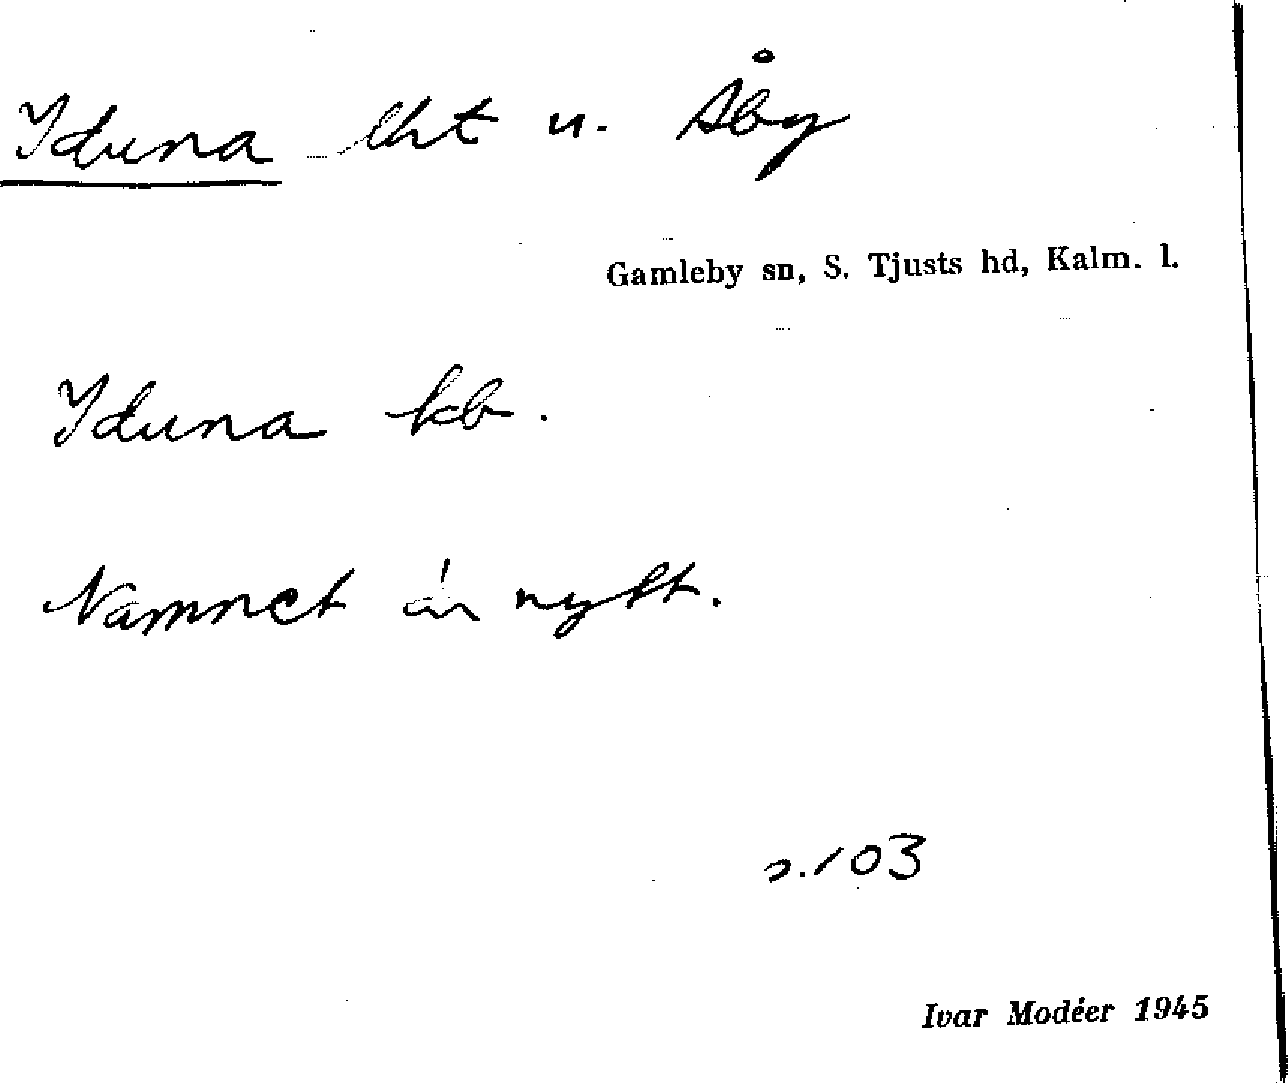 Iduna lht u. Åby
Gamleby sn, S. Tjusts hd, Kalm. l.
Iduna kb.
Namnet är nytt.
s. 103
Ivar Modéer 1945